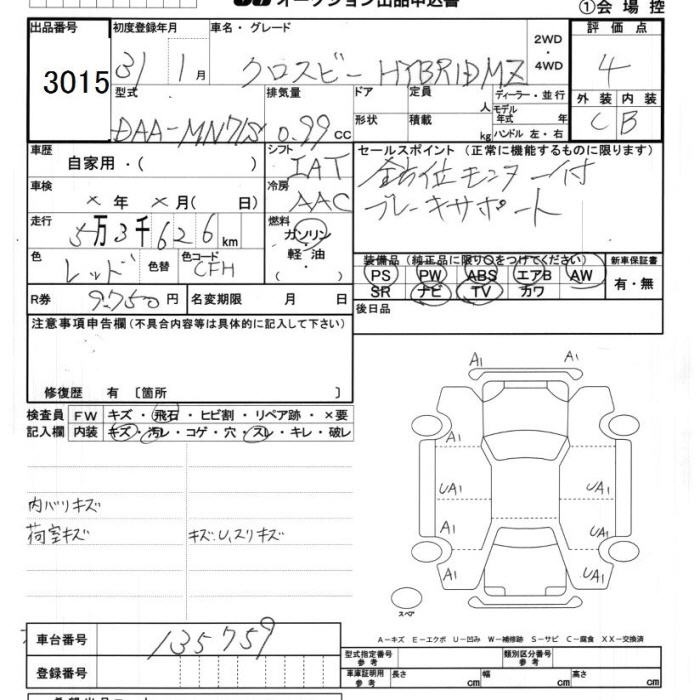 オークション出品申込書
①会場控
出品番号 3015
初度登録年月 31 1月
車名・グレード クロスビー HYBRIDMZ
2WD・4WD
評価点 4
型式 DAA-MN71S
排気量 0.99 cc
ドア 形状
定員 人 積載 kg
ディーラー・並行
モデル年式 年
ハンドル 左・右
外装 C 内装 B
車歴 自家用・( )
シフト IAT
セールスポイント (正常に機能するものに限ります)
全方位モニター付
ブレーキサポート
車検 ×年×月( 日)
冷房 AAC
走行 5万3千626km
燃料 ガソリン・軽・油・( )
色 レッド 色替 色コード CFH
装備品 (純正品に限り○をつけてください) 新車保証書
PS PW ABS エアB AW 有・無
SR ナビ TV カワ
R券 9.750円 名変期限 月 日
後日品
注意事項申告欄(不具合内容等は具体的に記入して下さい)
修復歴 有 〔箇所 〕
検査員記入欄
FW キズ・飛石・ヒビ割・リペア跡・×要
内装 キズ・汚レ・コゲ・穴・スレ・キレ・破レ
内バリキズ
荷室キズ
キズ、U、スリキズ
A1 A1
A1
UA1 UA1
A1 UA1
A1 A1
スペア
A−キズ E−エクボ U−凹み W−補修跡 S−サビ C−腐食 XX−交換済
車台番号 135759
型式指定番号 参考 類別区分番号 参考
登録番号
車庫証明用 参考 長さ cm 幅 cm 高さ cm